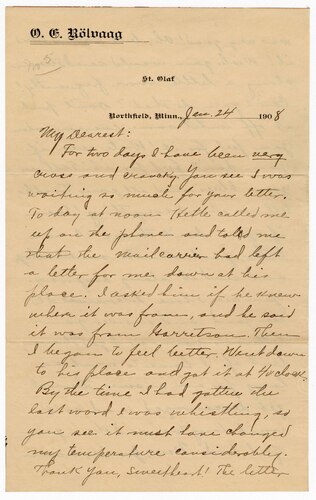 O. E. Rölvaag
No 5
St. Olaf
Northfield, Minn., Jan. 24 1908
My Dearest:
For two days I have been very
cross and cranky. You see I was
waiting so much for your letter.
To day at noon Helle called me
up on the phone and told me
that the mailcarrier had left
a letter for me down at his
place. I asked him if he knew
where it was from, and he said
it was from Garretson. Then
I began to feel better. Went down
to his place and got it at 4 o'clock.
By the time I had gotten the
last word I was whistling, so
you see it must have changed
my temperature considerably.
Thank you, Sweetheart! The letter